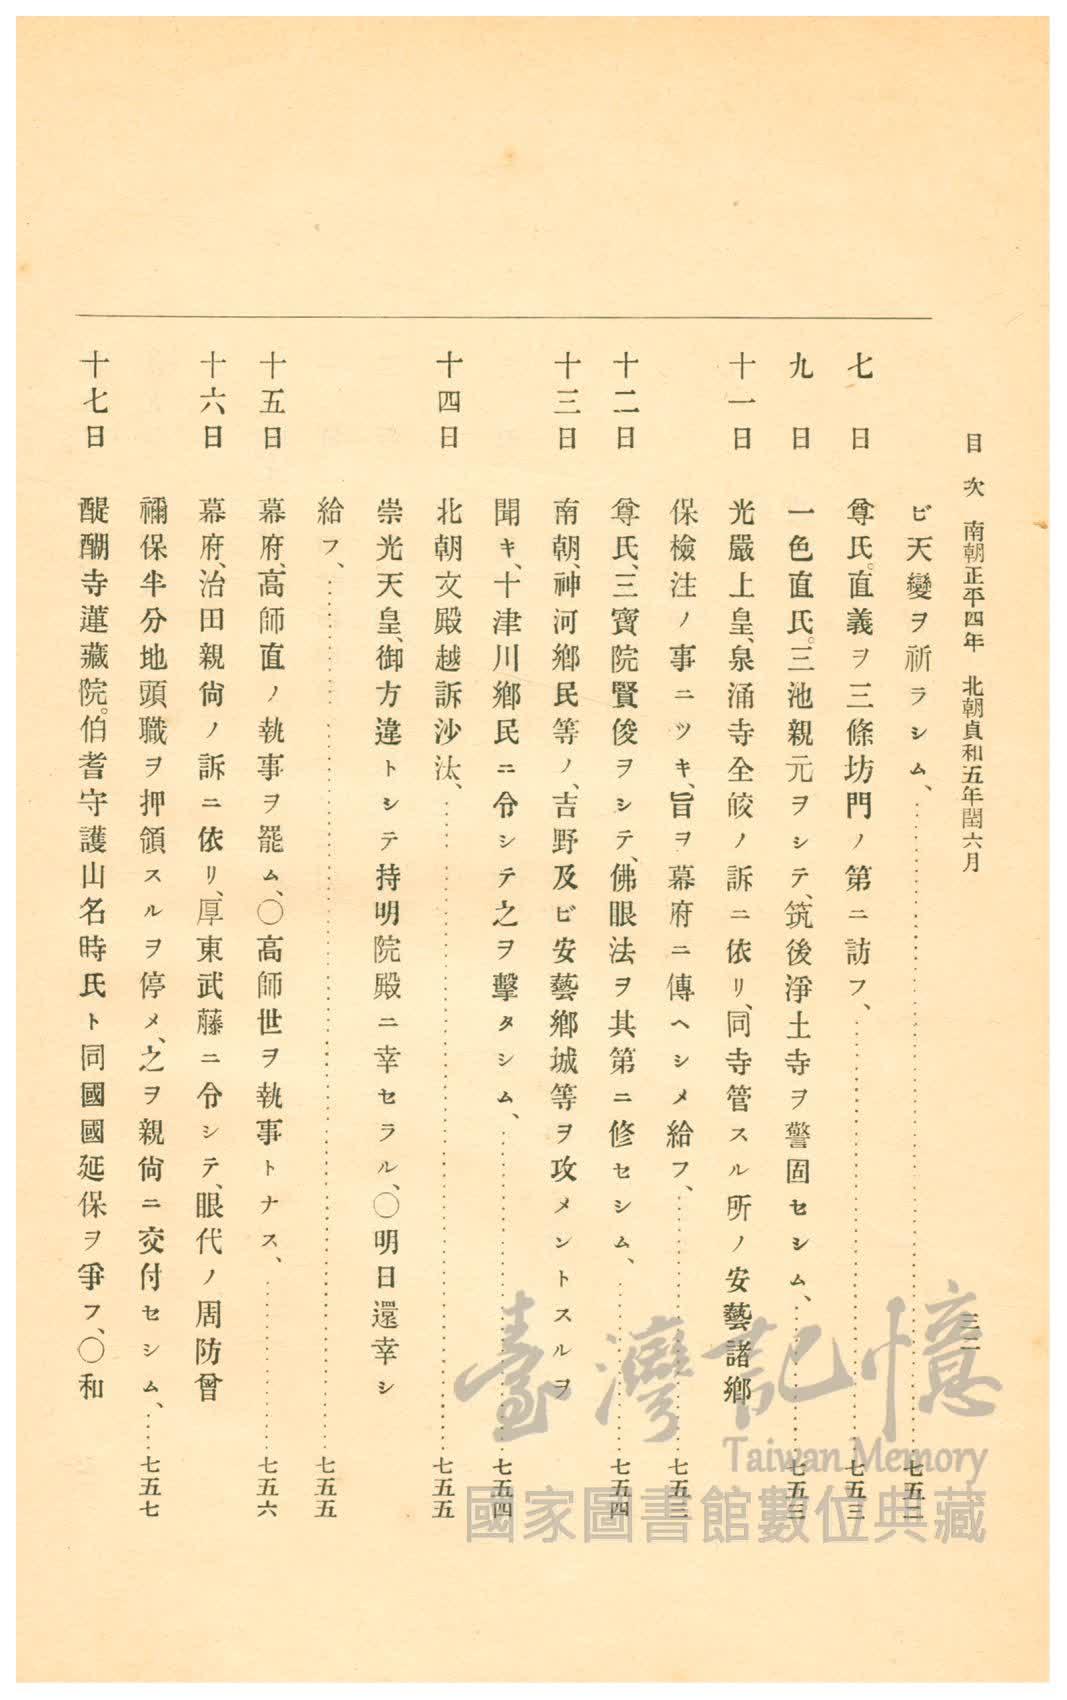 目次 南朝正平四年 北朝貞和五年閏六月 三二
ビ天變ヲ祈ラシム、……七五三
七日 尊氏。直義ヲ三條坊門ノ第ニ訪フ、……七五三
九日 一色直氏。三池親元ヲシテ、筑後淨土寺ヲ警固セシム、……七五三
十一日 光嚴上皇、泉涌寺全皎ノ訴ニ依リ、同寺管スル所ノ安藝諸鄕
保檢注ノ事ニツキ、旨ヲ幕府ニ傳ヘシメ給フ、……七五三
十二日 尊氏、三寶院賢俊ヲシテ、佛眼法ヲ其第ニ修セシム、……七五四
十三日 南朝、神河鄕民等ノ、吉野及ビ安藝鄕城等ヲ攻メントスルヲ
聞キ、十津川鄕民ニ令シテ之ヲ擊タシム、……七五四
十四日 北朝文殿越訴沙汰、……七五五
崇光天皇、御方違トシテ持明院殿ニ幸セラル、〇明日還幸シ
給フ、……七五五
十五日 幕府、高師直ノ執事ヲ罷ム、〇高師世ヲ執事トナス、……七五六
十六日 幕府、治田親尙ノ訴ニ依リ、厚東武藤ニ令シテ、眼代ノ周防曾
禰保半分地頭職ヲ押領スルヲ停メ、之ヲ親尙ニ交付セシム、……七五七
十七日 醍醐寺蓮藏院。伯耆守護山名時氏ト同國國延保ヲ爭フ、〇和
臺灣記憶
Taiwan Memory
國家圖書館數位典藏